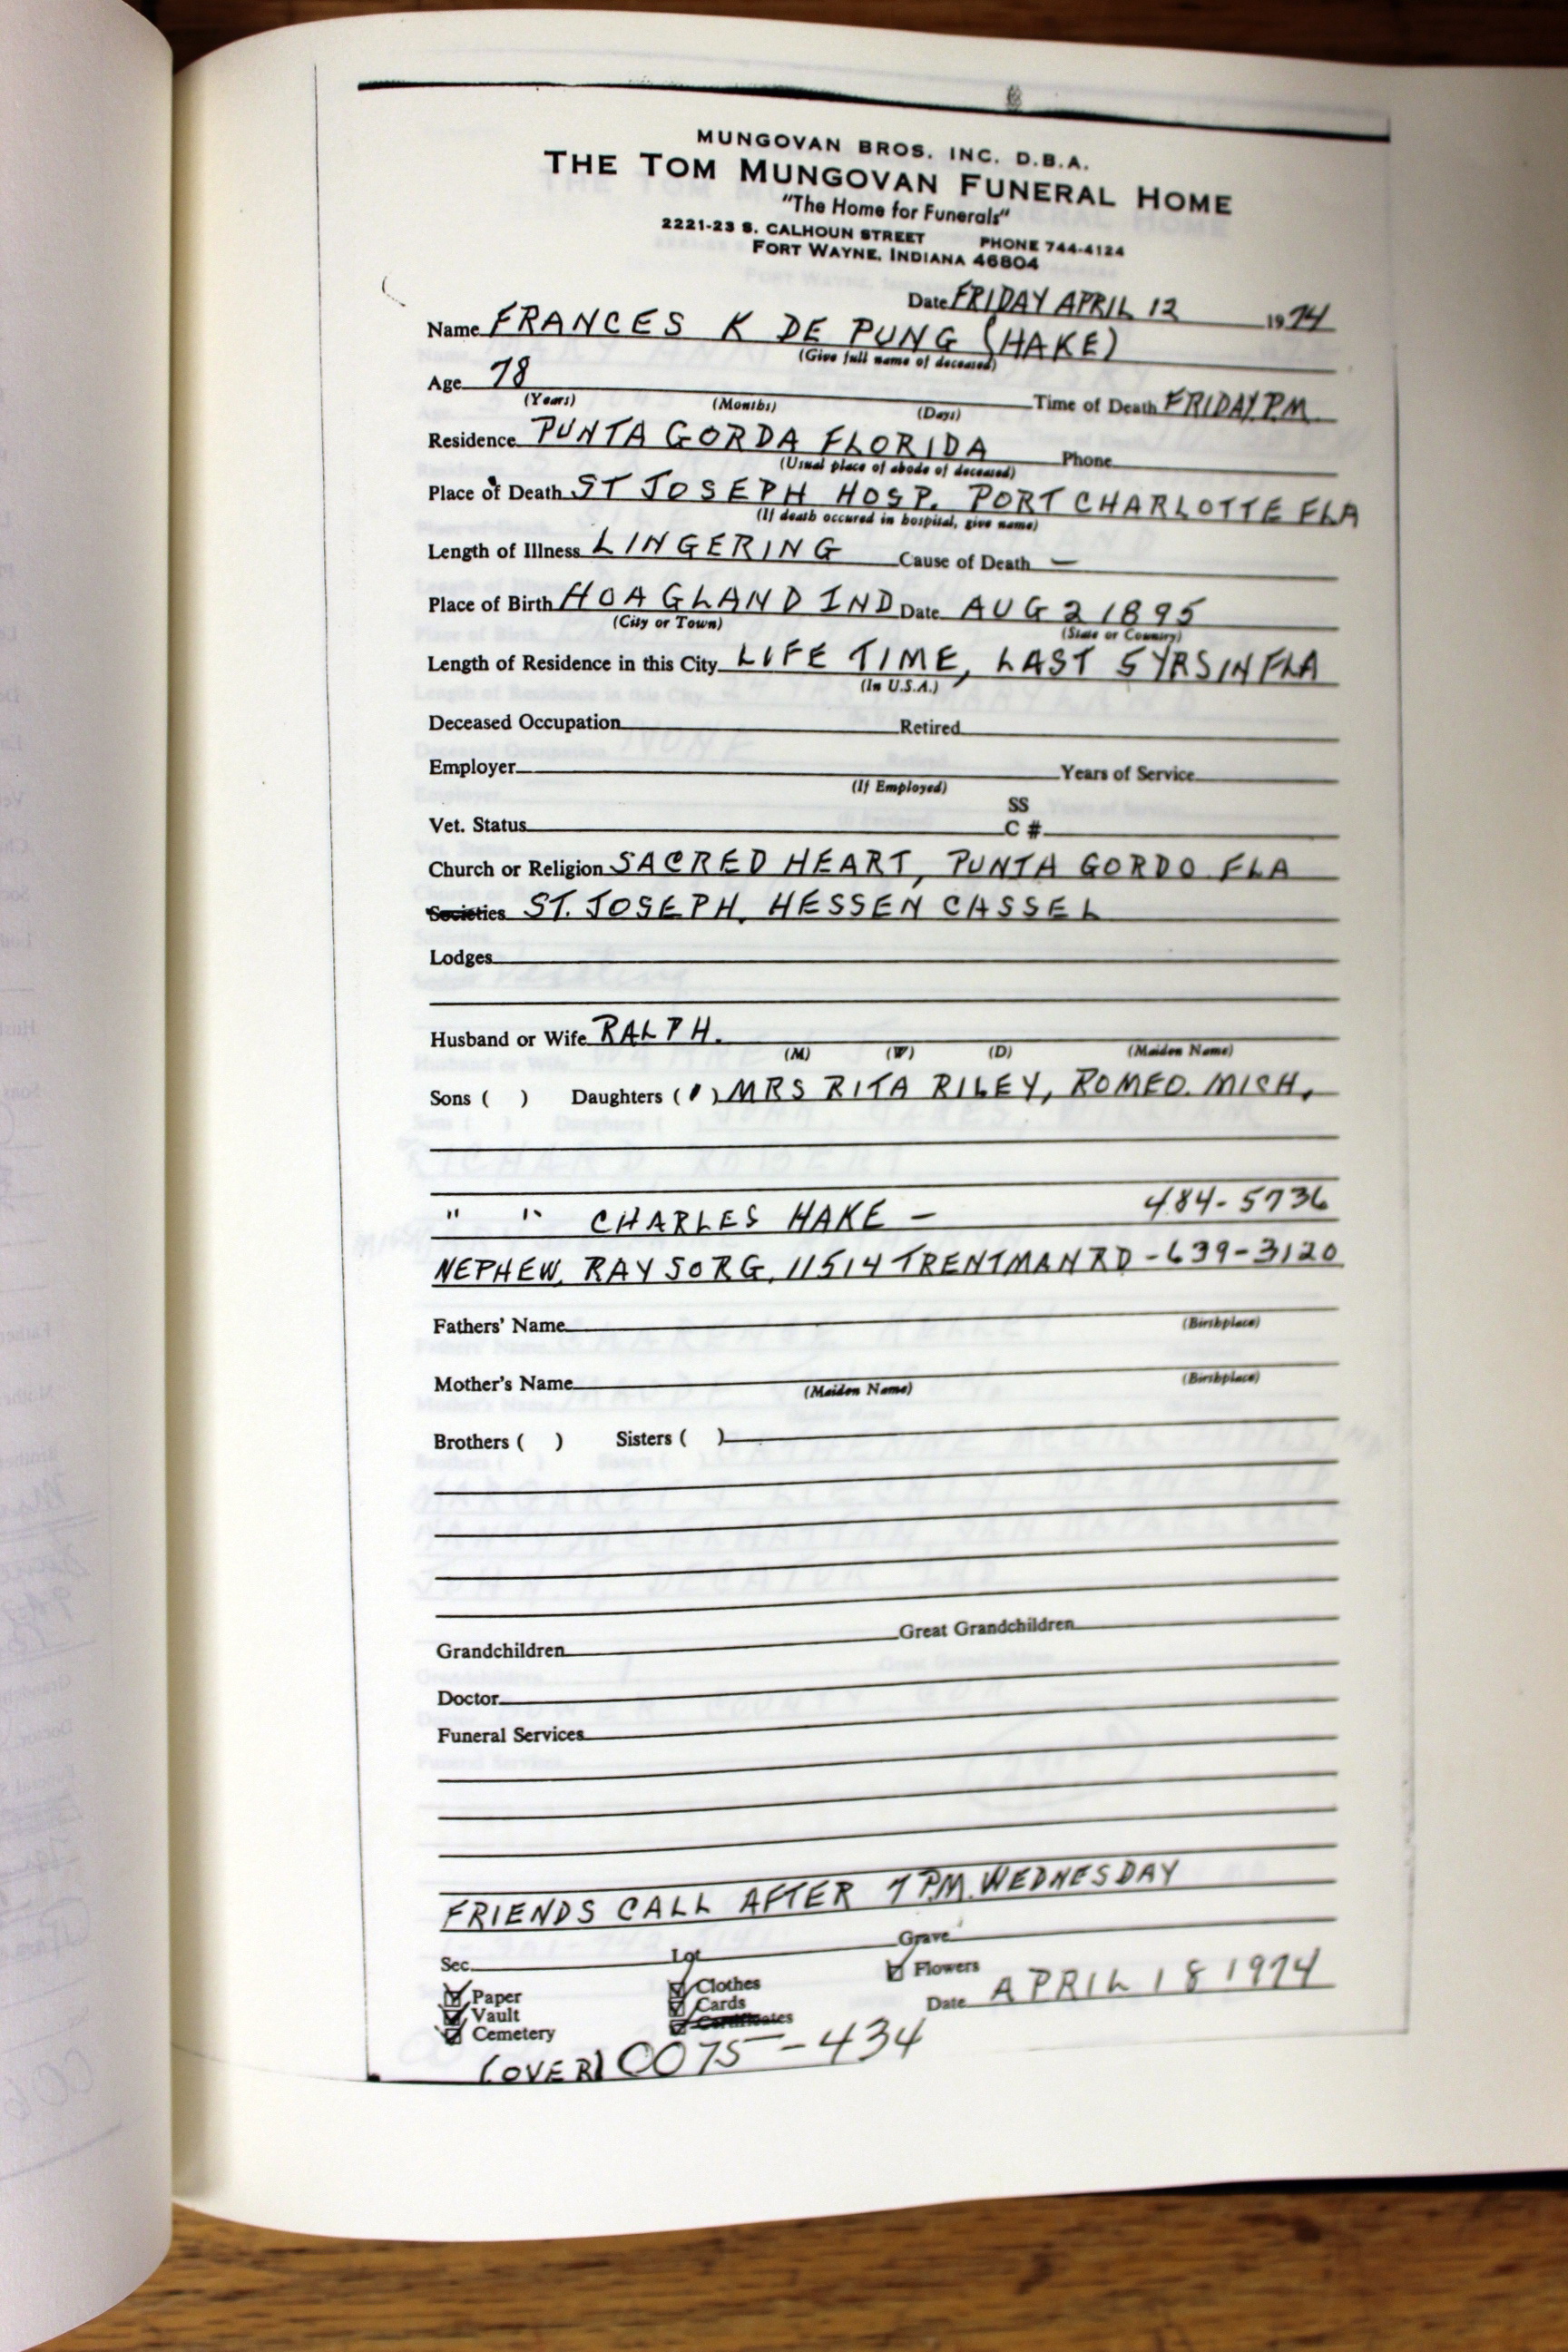 MUNGOVAN BROS. INC. D.B.A.
THE TOM MUNGOVAN FUNERAL HOME
"The Home for Funerals"
2221-23 S. CALHOUN STREET PHONE 744-4124
FORT WAYNE, INDIANA 46804
Date FRIDAY APRIL 12 1974
Name FRANCES K DE PUNG (HAKE)
(Give full name of deceased)
Age 78 Time of Death FRIDAY P.M.
(Years) (Months) (Days)
Residence PUNTA GORDA FLORIDA Phone
(Usual place of abode of deceased)
Place of Death ST JOSEPH HOSP. PORT CHARLOTTE FLA
(If death occured in hospital, give name)
Length of Illness LINGERING Cause of Death —
Place of Birth HOAGLAND IND Date AUG 2 1895
(City or Town) (State or Country)
Length of Residence in this City LIFE TIME, LAST 5 YRS IN FLA
(In U.S.A.)
Deceased Occupation Retired
Employer Years of Service
(If Employed)
SS
Vet. Status C #
Church or Religion SACRED HEART, PUNTA GORDO FLA
Societies ST. JOSEPH, HESSEN CASSEL
Lodges
Husband or Wife RALPH.
(M) (W) (D) (Maiden Name)
Sons ( ) Daughters (1) MRS RITA RILEY, ROMEO. MICH,
" " CHARLES HAKE - 484-5736
NEPHEW, RAY SORG, 11514 TRENTMAN RD - 639-3120
Fathers' Name
(Birthplace)
Mother's Name
(Maiden Name) (Birthplace)
Brothers ( ) Sisters ( )
Grandchildren Great Grandchildren
Doctor
Funeral Services
FRIENDS CALL AFTER 7 P.M. WEDNESDAY
Sec. Lot Grave
Paper Clothes Flowers
Vault Cards Date APRIL 18 1974
Cemetery Certificates
(OVER) CO75-434